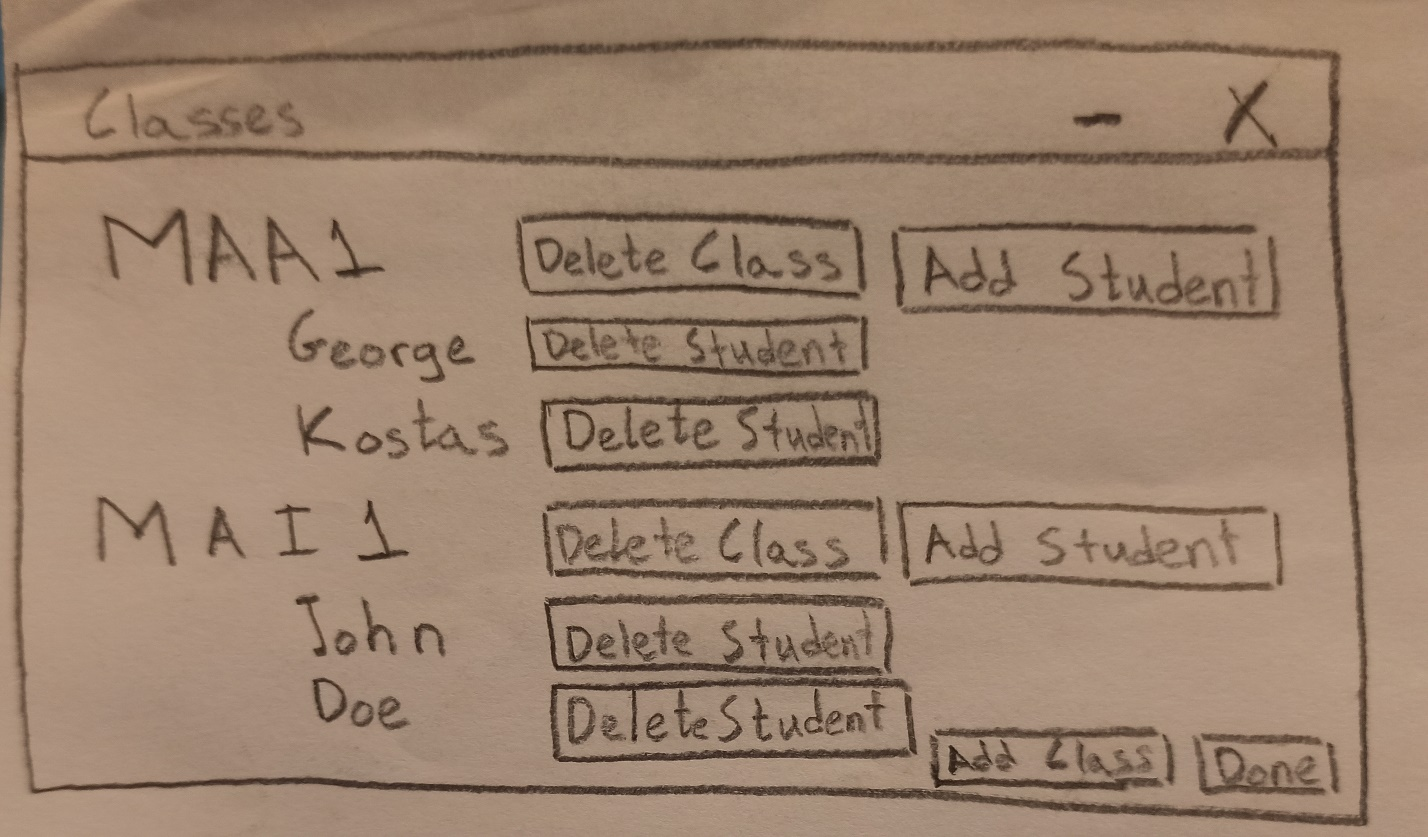 Classes - X
MAA1 Delete Class Add Student
George Delete Student
Kostas Delete Student
MAI1 Delete Class Add Student
John Delete Student
Doe Delete Student
Add Class Done